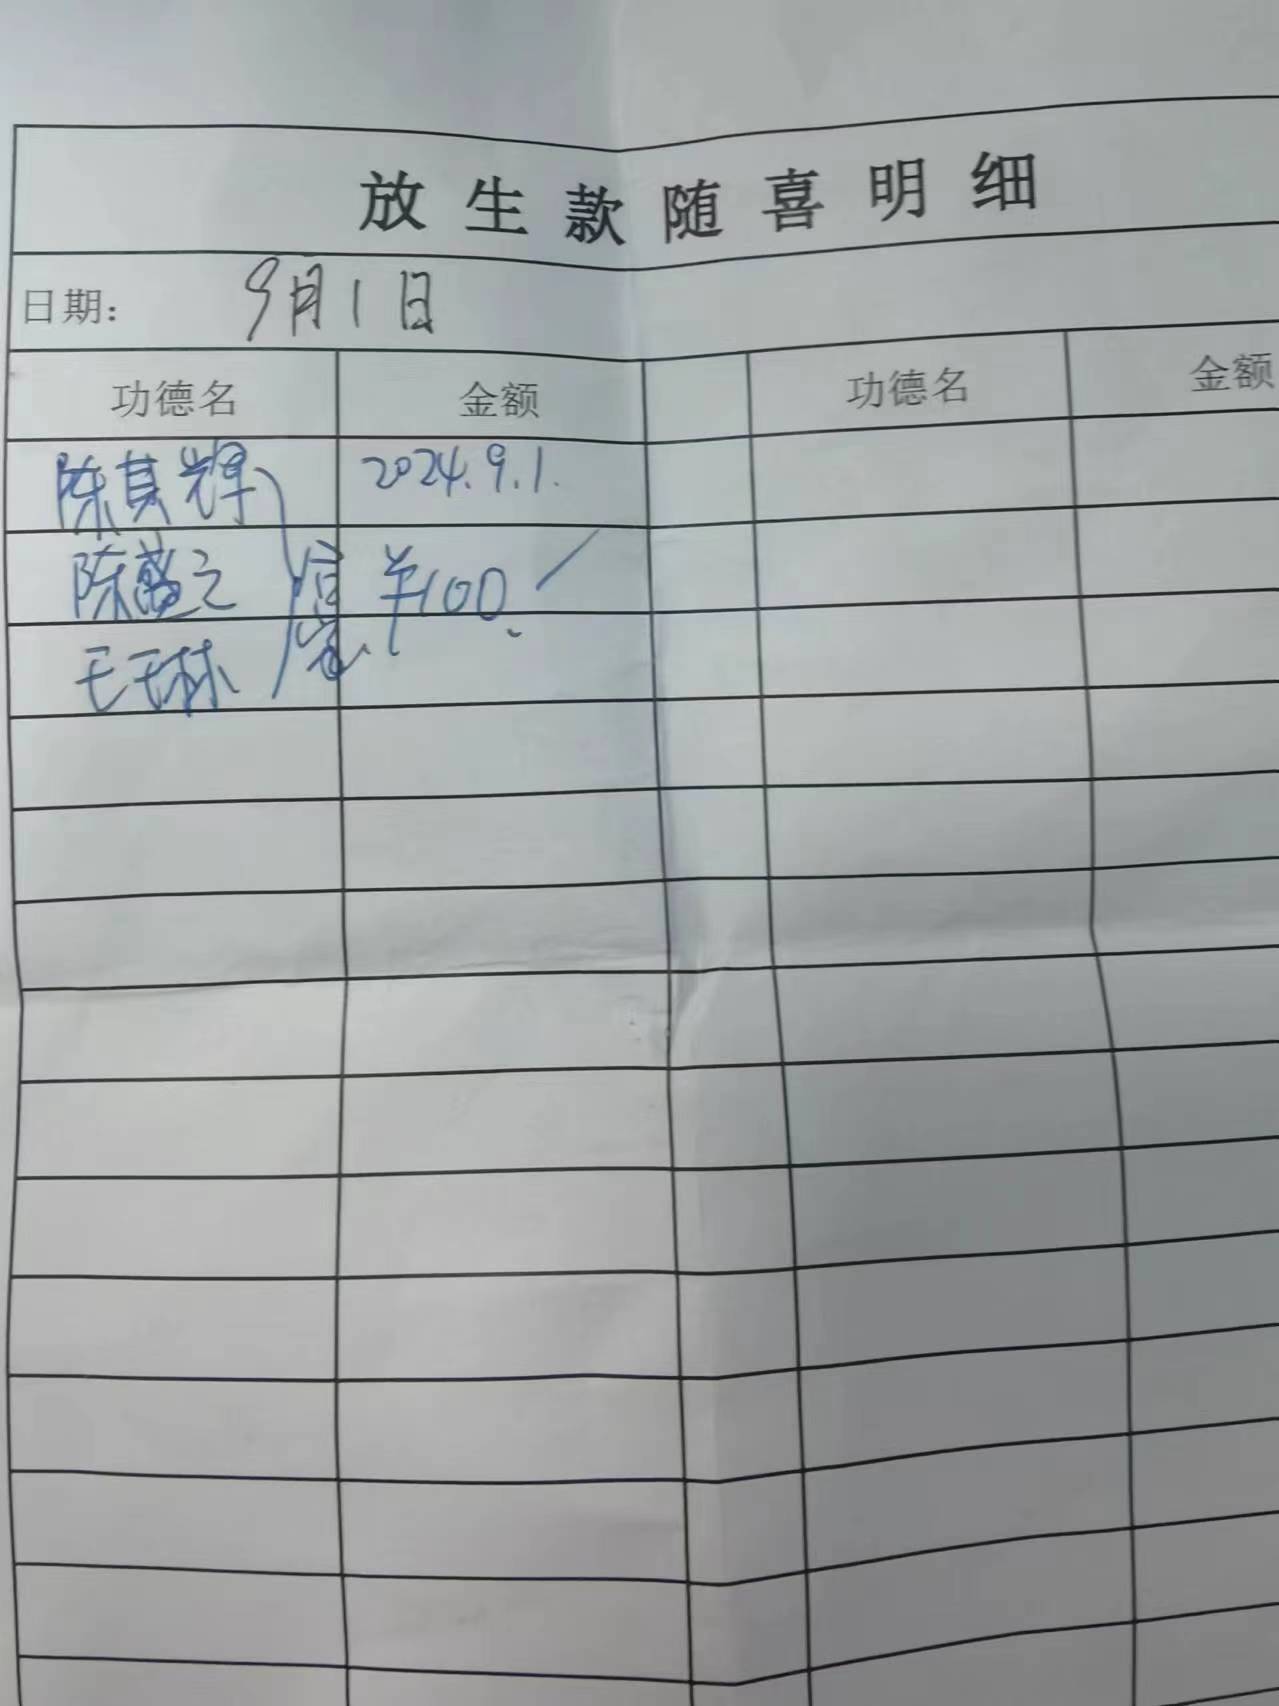 放生款随喜明细
日期: 9月1日
功德名 金额 功德名 金额
陈其辉 2024.9.1.
陈之 ¥100
王玉林